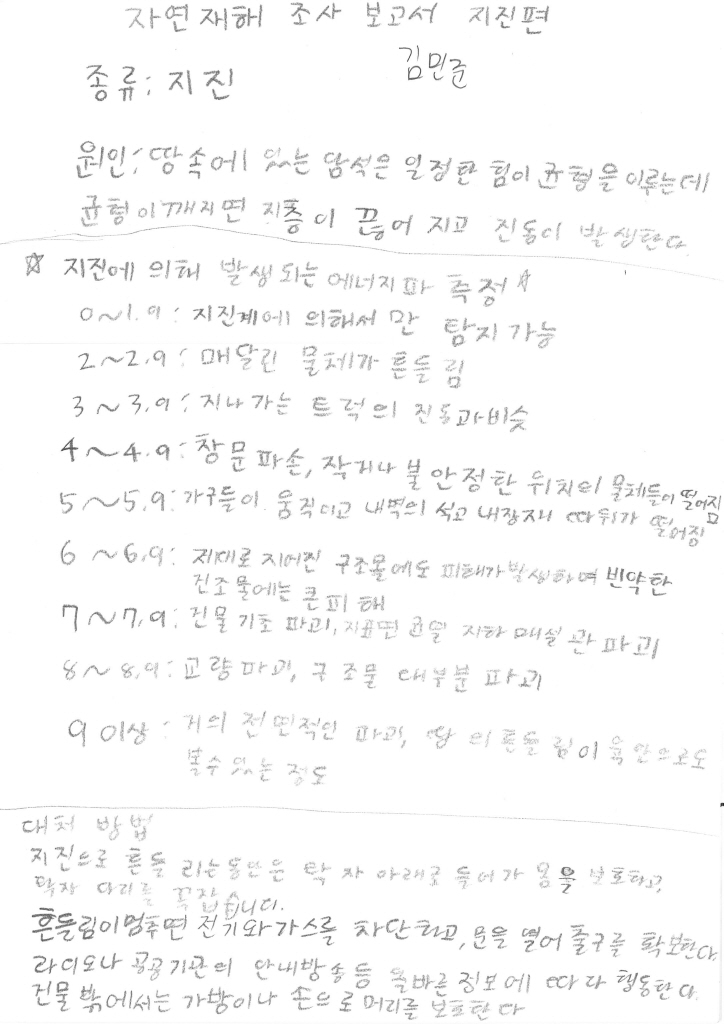 자연재해 조사 보고서 지진편
김민준
종류: 지진
원인: 땅속에 있는 암석은 일정한 힘이 균형을 이루는데
균형이 깨지면 지층이 끊어 지고 진동이 발생한다
☆ 지진에 의해 발생되는 에너지파 측정 ☆
0~1.9: 지진계에 의해서 만 탐지 가능
2~2.9: 매달린 물체가 흔들림
3~3.9: 지나가는 트럭의 진동과비슷
4~4.9: 창문파손, 작거나 불안정한 위치의 물체들이 떨어짐
5~5.9: 가구들이 움직이고 내벽의 석고 내장재 따위가 떨어짐
6~6.9: 제대로 지어진 구조물에도 피해가 발생하며 빈약한
건조물에는 큰피해
7~7.9: 건물기초 파괴, 지표면 균열 지하 매설 관 파괴
8~8.9: 교량파괴, 구조물 대부분 파괴
9 이상: 거의 전면적인 파괴, 땅 의흔들림이 육안으로도
볼수 있는 정도
대처 방법
지진으로 흔들 리는동안은 탁자 아래로 들어가 몸을 보호하고,
탁자 다리를 꼭잡습니다.
흔들림이멈추면 전기와가스를 차단하고, 문을 열어 출구를 확보한다.
라디오나 공공기관의 안내방송등 올바른 정보에 따라 행동한다.
건물 밖에서는 가방이나 손으로 머리를 보호한다